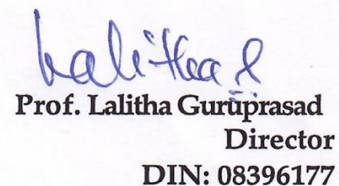 Lalitha G
Prof. Lalitha Guruprasad
Director
DIN: 08396177